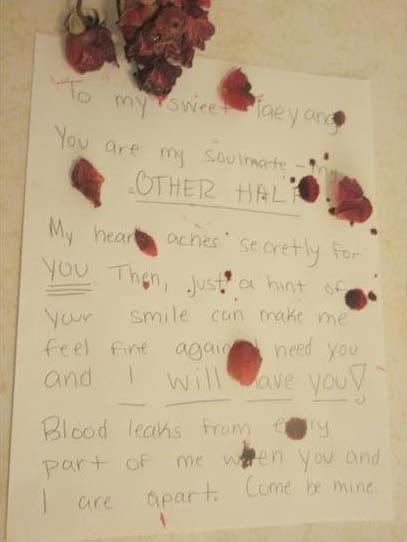 To my sweet Taeyang
You are my soulmate - my
OTHER HALF
My heart aches secretly for
you Then, just a hint of
your smile can make me
feel fine again I need you
and I will have you!
Blood leaks from every
part of me when you and
I are apart. Come be mine.